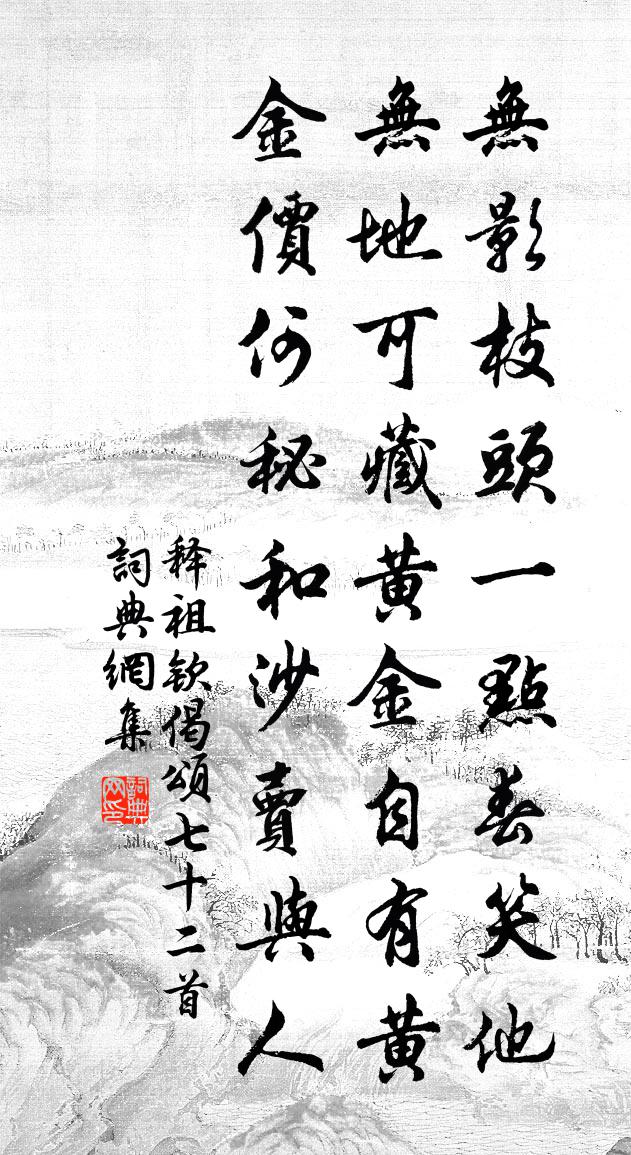 無影枝頭一點春笑他
無地可藏黄金自有黄
金價何秘和沙賣與人
释祖钦偈頌七十二首
詞典網集
詞典网印